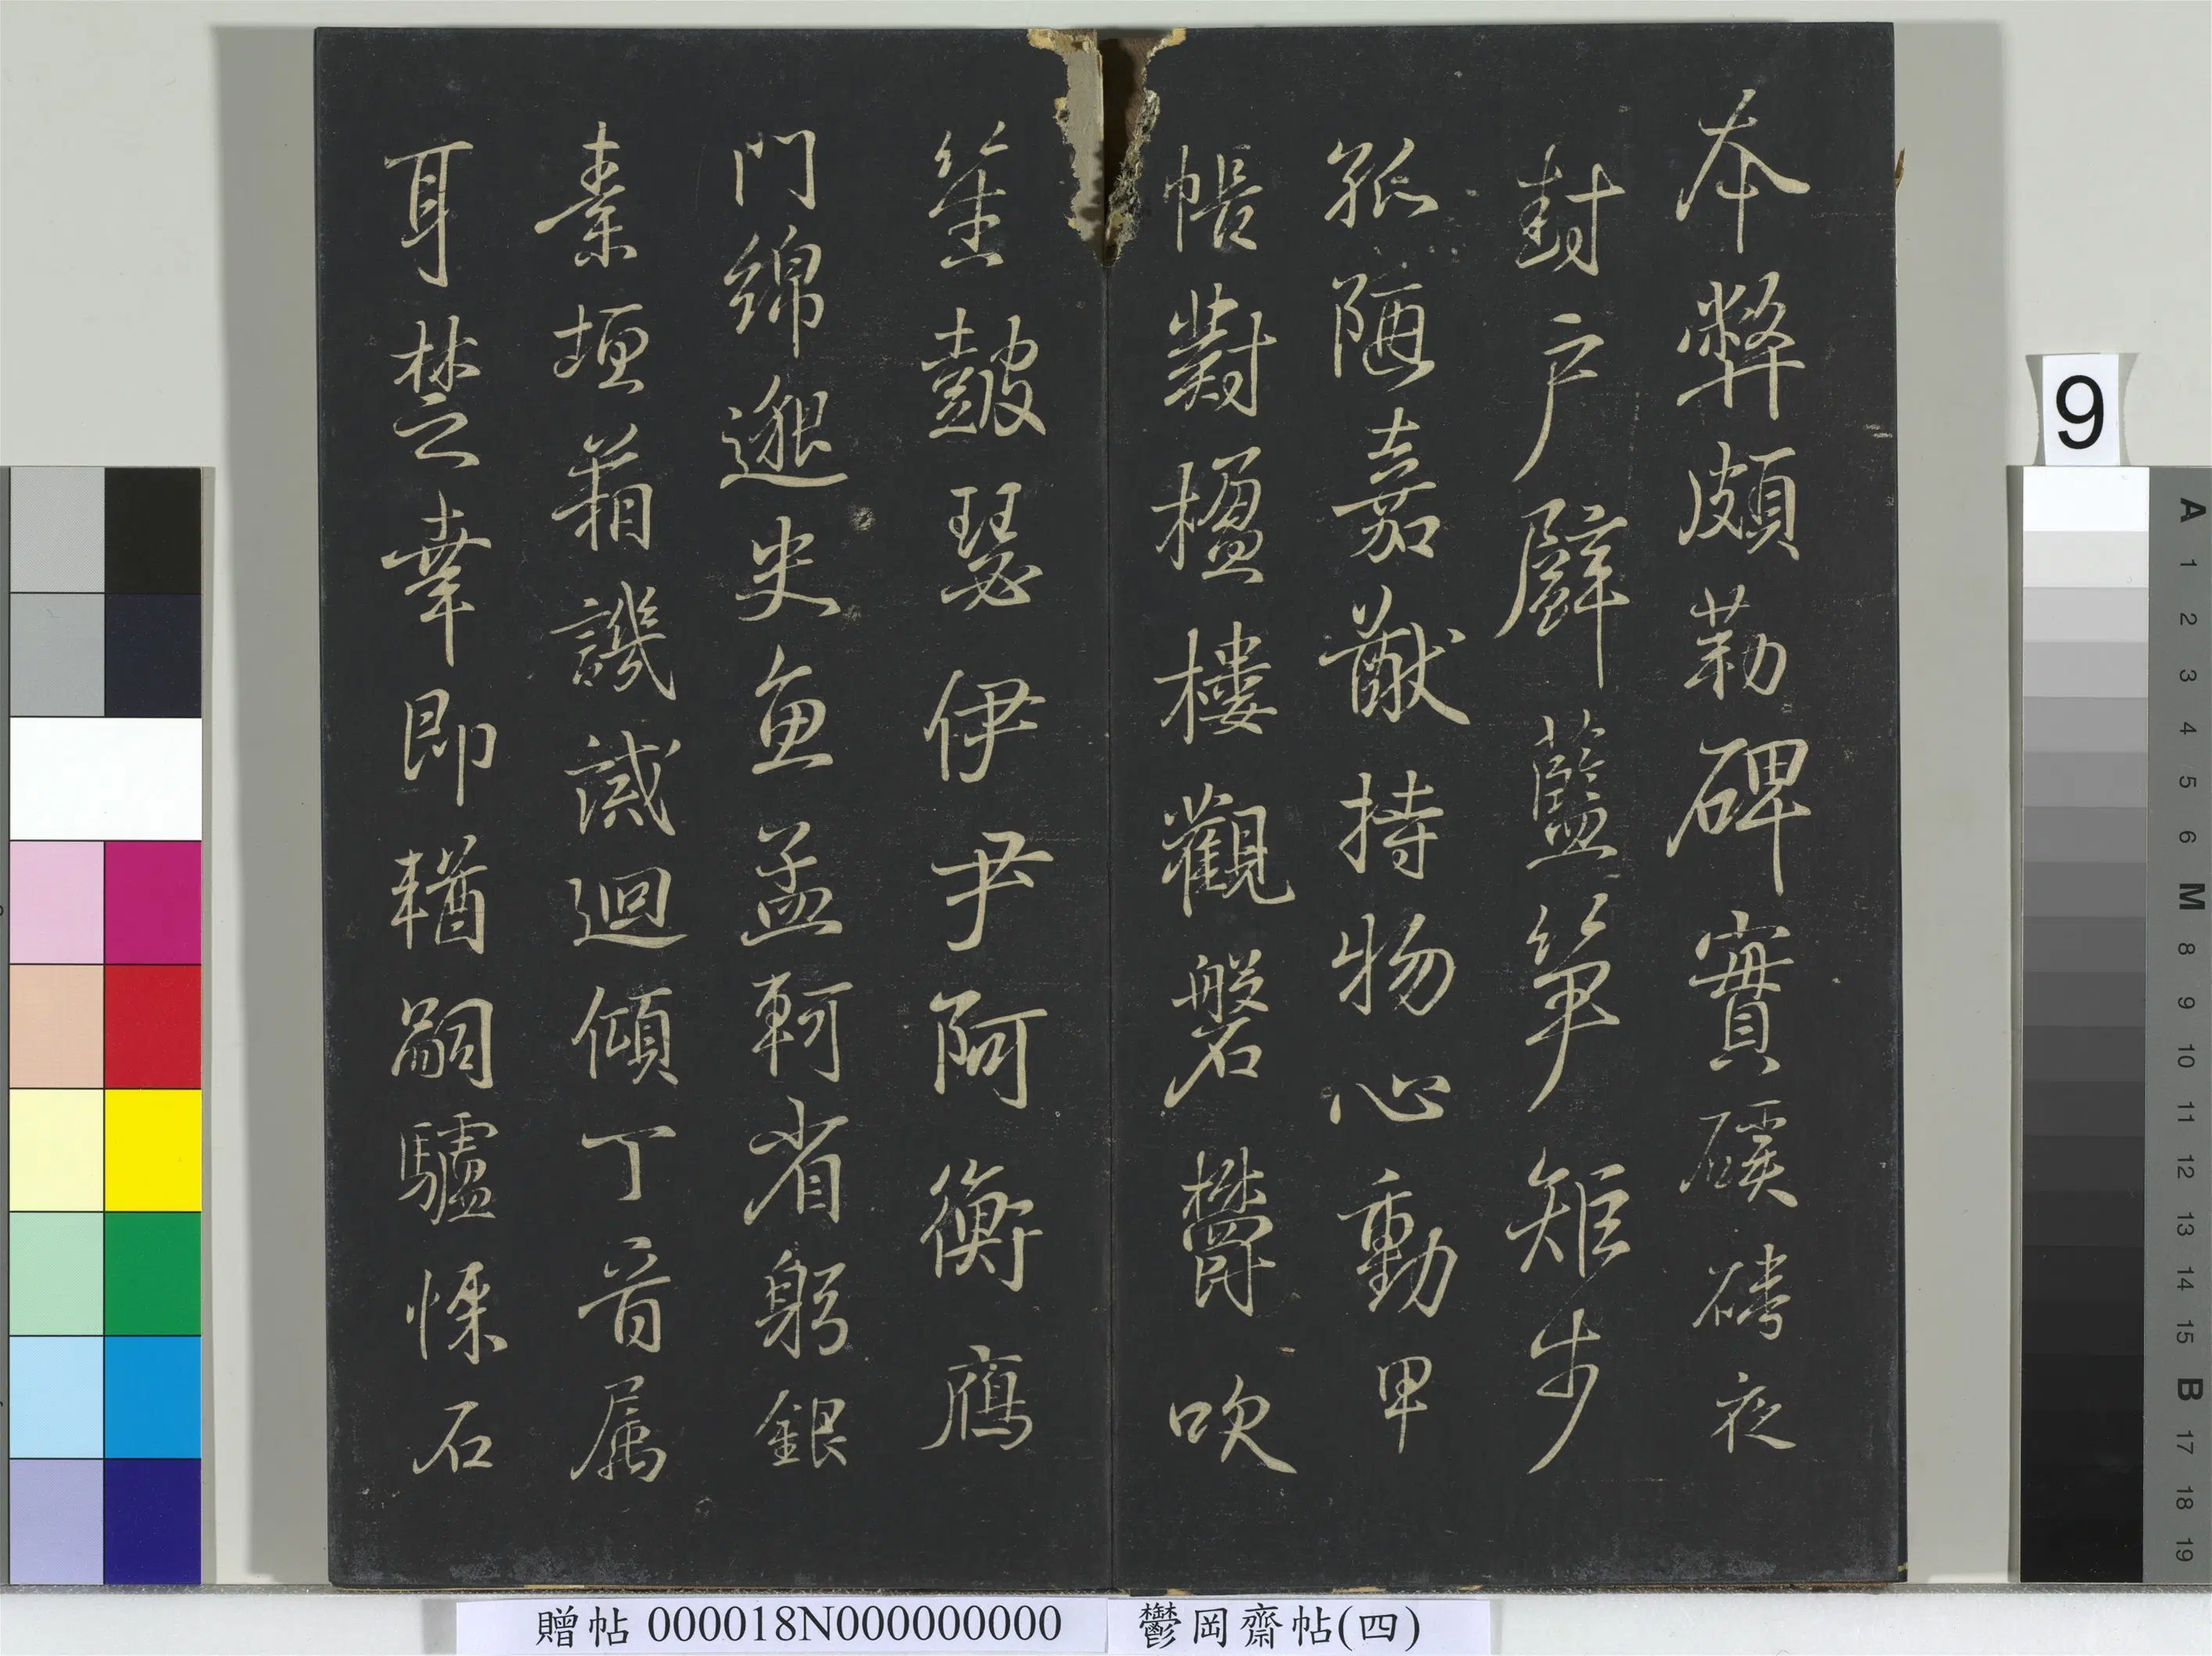 本弊頗勒碑實磎夜
封户壁藍笋矩步
孤陋嘉猷持物心動甲
帳對楹樓觀磐鬱吹
笙鼓瑟伊尹阿衡鴈
門綿邈史魚孟軻省躬銀
素垣葙譏誡迴傾丁晋属
耳楚幸即輶嗣驢悚石
9
A 1 2 3 4 5 6 M 8 9 10 11 12 13 14 15 B 17 18 19
贈帖 000018N000000000 鬱岡齋帖(四)